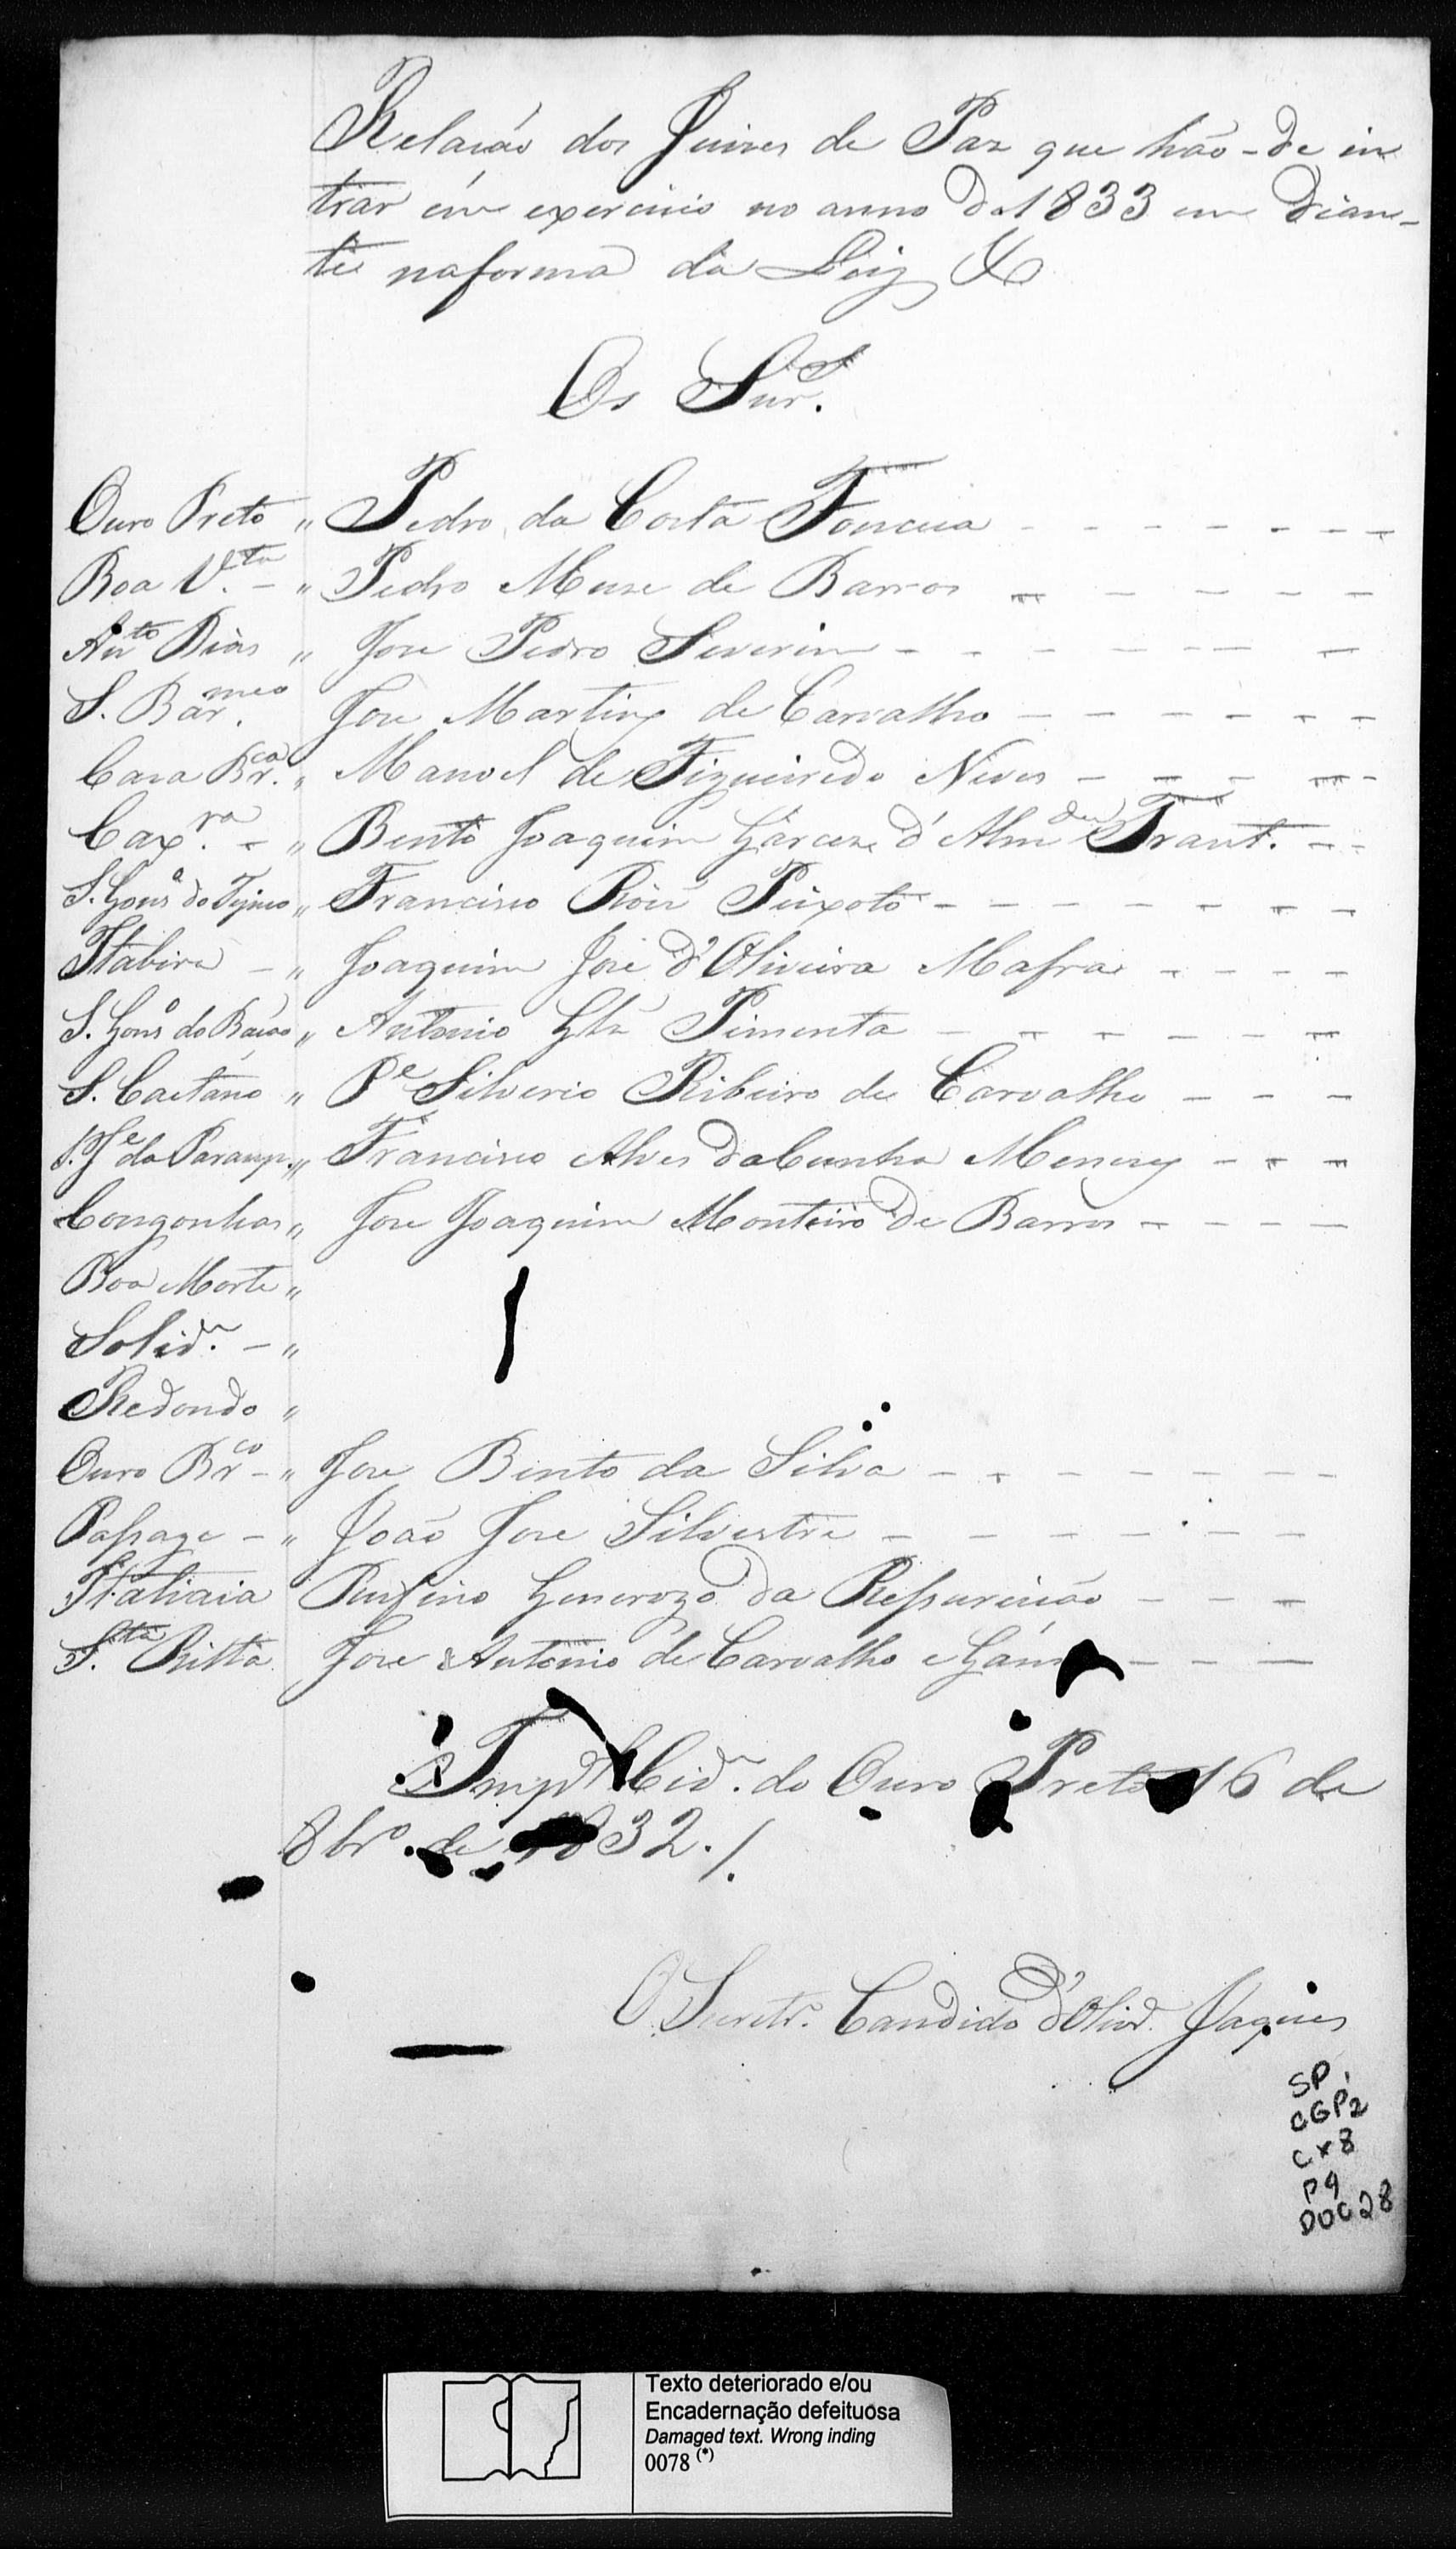 Relacáo dos Juizes de Paz que hão-de in
trar em exercicio no anno de 1833 em dian-
te na forma da Ley &
Os Snr.es
Ouro Preto " Pedro da Costa Fonceca
Boa V.ta - " Pedro Muze de Barros
Ant.to Dias " Joze Pedro Severin
S. Bar.meo Joze Martins de Carvalho
Caxa Br.ca " Manoel de Figueiredo Neves
Cax.ra - " Bento Joaquim Garcez d'Alm.da Trant.
S. Gons.o do Tijuco " Francisco Roiz Peixoto
Itabira - " Joaquim José d'Oliveira Mafra
S. Gons.o do Bação " Antonio Glz Pimenta
S. Caetano " P.e Silverio Ribeiro de Carvalho
S. J.e do Paraup. " Francisco Alves da Cunha Menezes
Congonhas " Joze Joaquim Monteiro de Barros
Boa Morte "
Solid.e - "
Redondo "
Ouro Br.co - " Joze Bento da Silva
Passage - " João Joze Silvestre
Itatiaia Rufino Generozo da Ressureicão
S.ta Ritta Joze Antonio de Carvalho e Gama
Imp.al Cid.e do Ouro Preto 16 de
8br.o de 1832./.
O Secretr.o Candido d'Oliv.a Jaques
SP
CGP2
CX8
P9
DOC28
Texto deteriorado e/ou
Encadernação defeituosa
Damaged text. Wrong inding
0078 (*)